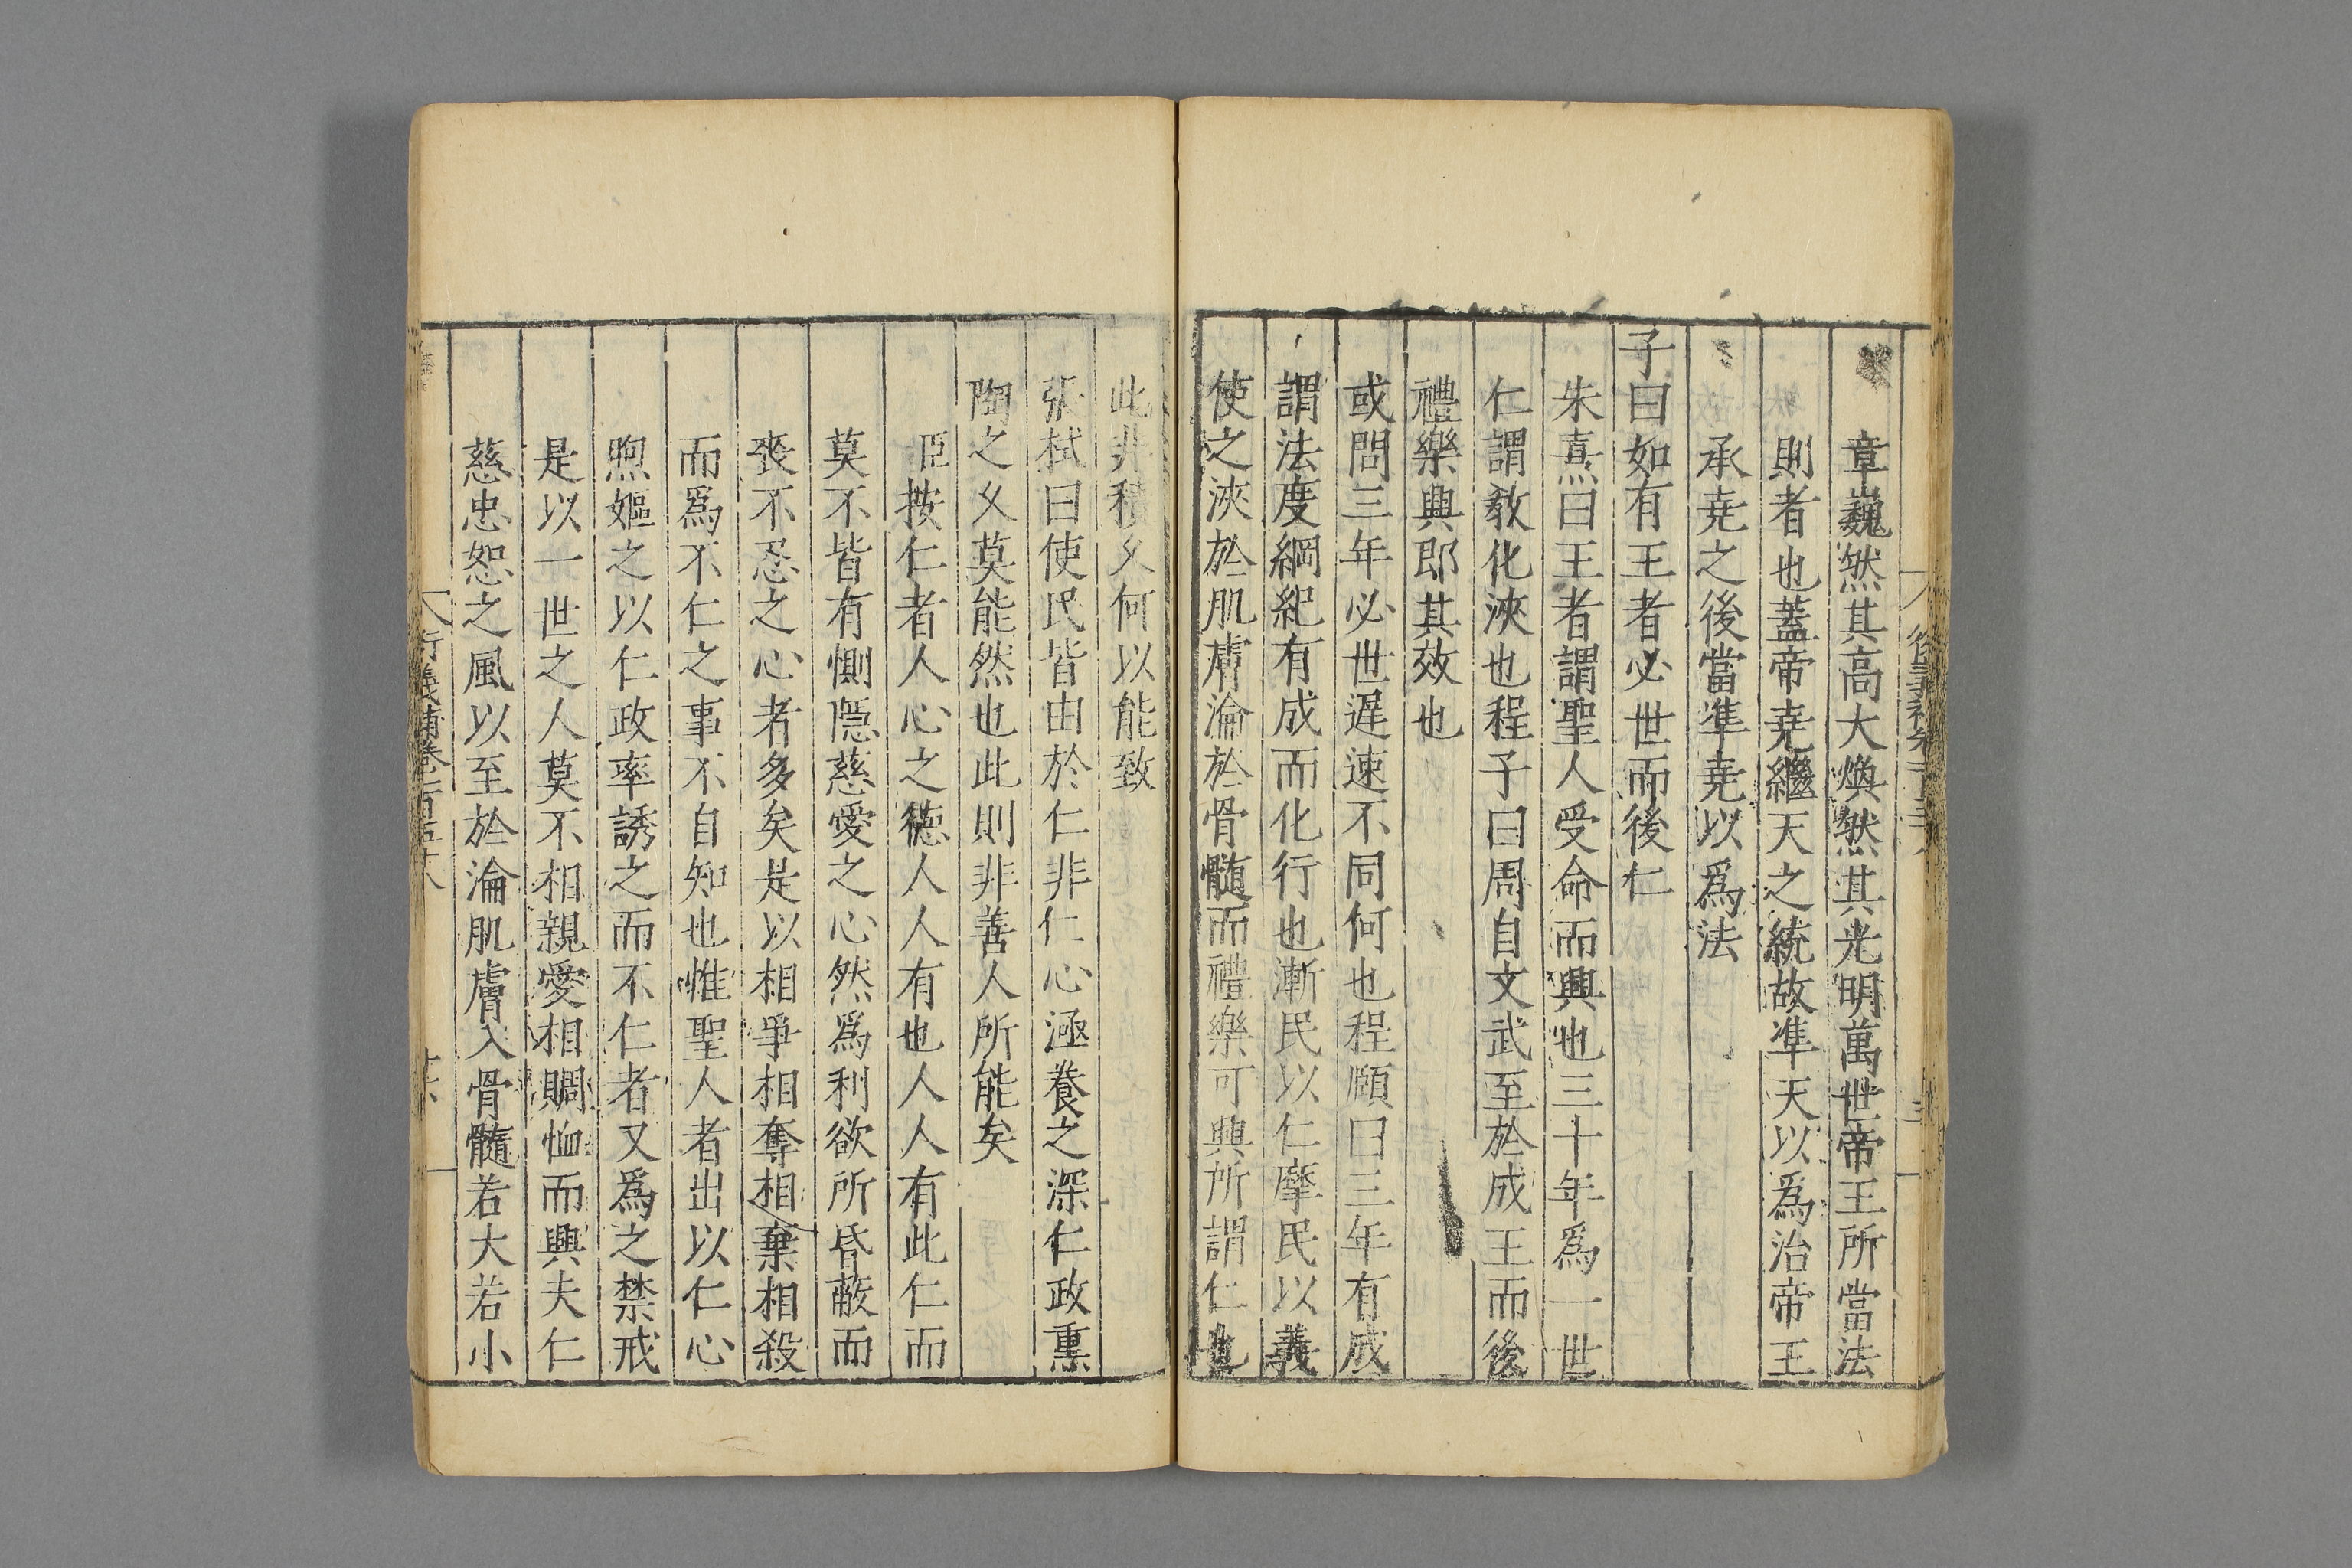 章巍然其高大煥然其光明萬世帝王所當法
則者也蓋帝堯繼天之統故準天以爲治帝王
承堯之後當準堯以爲法
子曰如有王者必世而後仁
朱熹曰王者謂聖人受命而興也三十年爲一世
仁謂敎化浹也程子曰周自文武至於成王而後
禮樂興郎其效也
或問三年必世遲速不同何也程頥曰三年有成
謂法度綱紀有成而化行也漸民以仁摩民以義
使之浹於肌膚淪於骨髓而禮樂可興所謂仁也
此非積乆何以能致
張栻曰使民皆由於仁非仁心涵養之深仁政熏
陶之乆莫能然也此則非善人所能矣
臣按仁者人心之德人人有也人人有此仁而
莫不皆有惻隱慈愛之心然爲利欲所昏蔽而
喪不忍之心者多矣是以相爭相奪相棄相殺
而爲不仁之事不自知也惟聖人者出以仁心
煦嫗之以仁政率誘之而不仁者又爲之禁戒
是以一世之人莫不相親愛相賙恤而興夫仁
慈忠恕之風以至於淪肌膚入骨髓若大若小
衍義補卷一百五十八